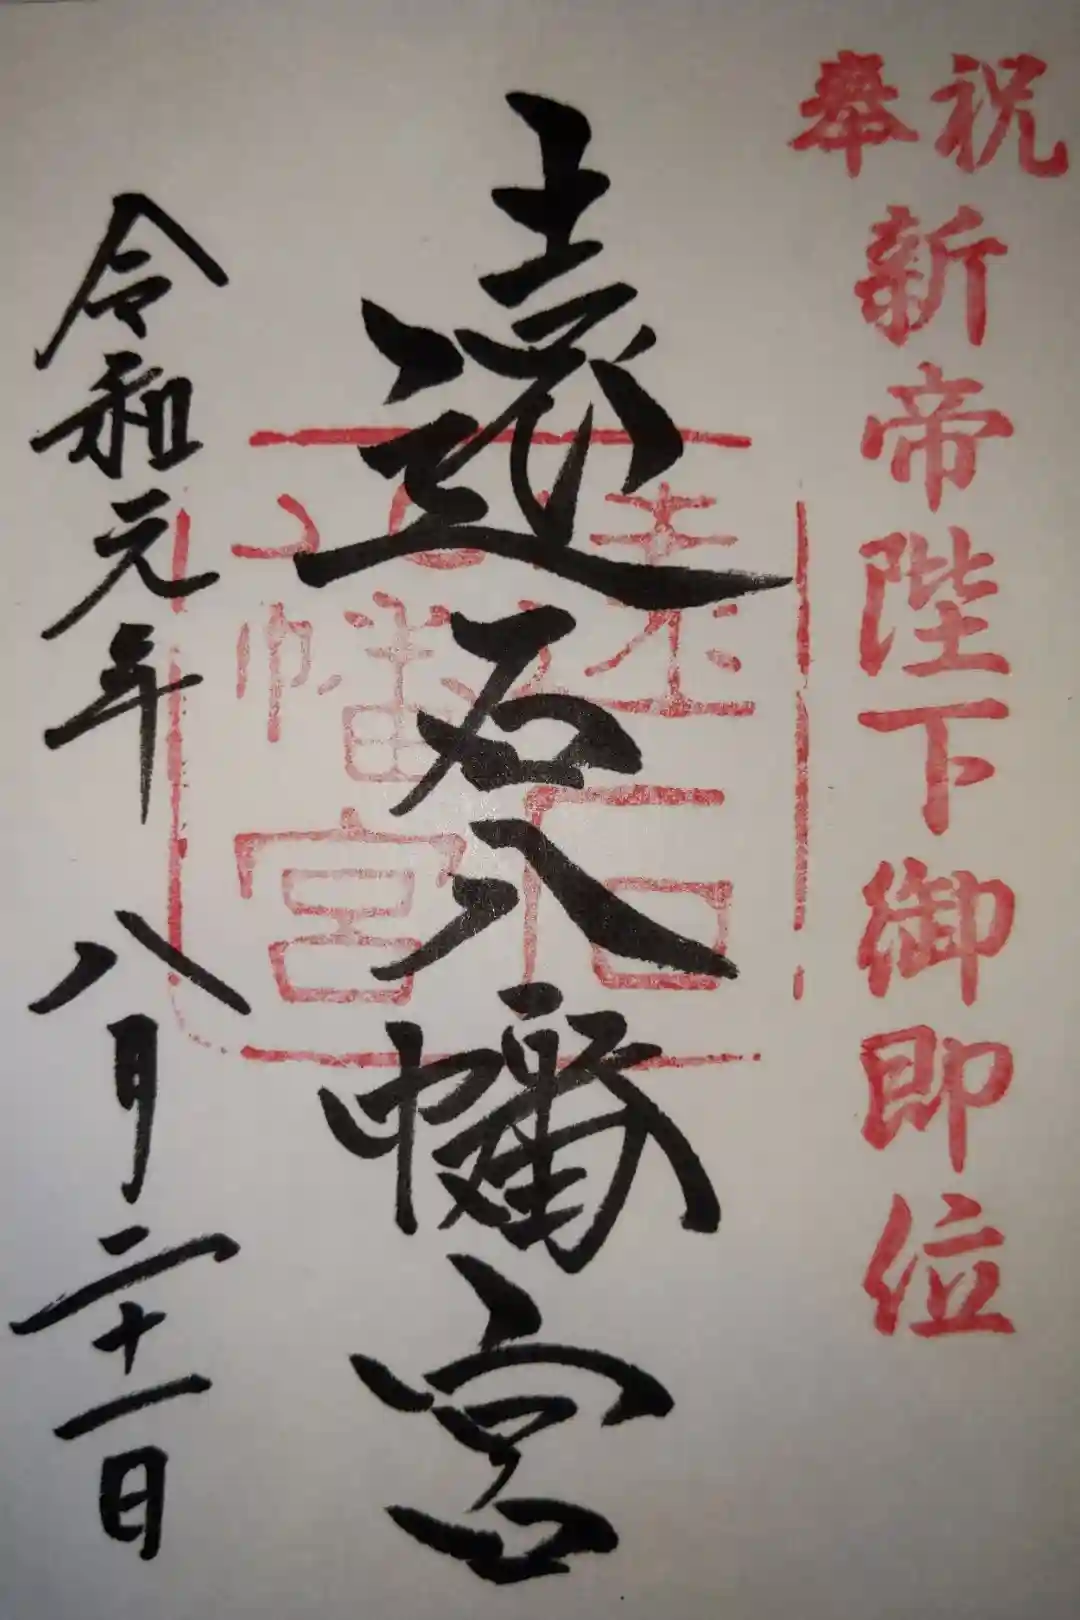 奉祝
新帝陛下御即位
遠石八幡宮
遠石八幡宮
令和元年 八月二十一日